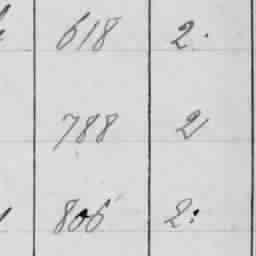 618 2.
788 2
806 2: